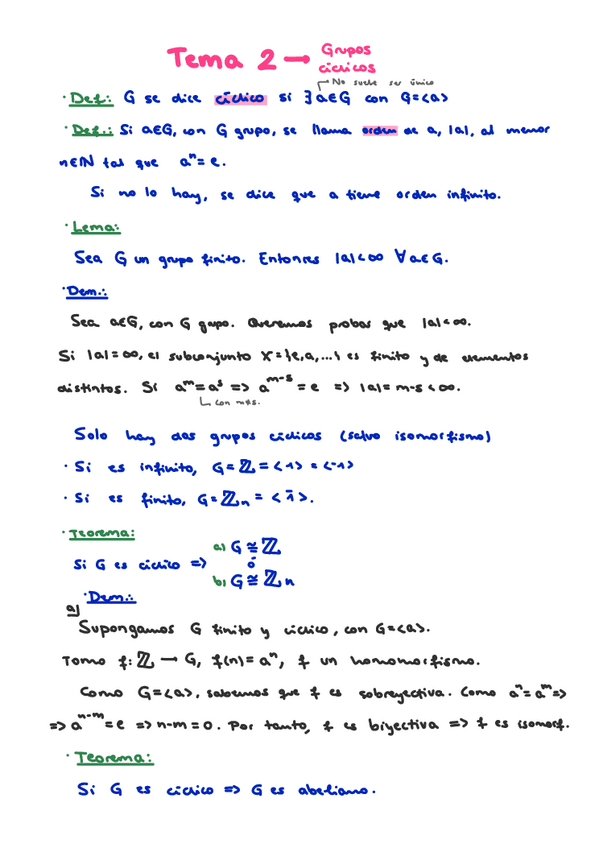 Tema 2 → Grupos
cíclicos
No suele ser único
· Def.: G se dice cíclico si ∃ a∈G con G=<a>
· Def.: Si a∈G, con G grupo, se llama orden de a, |a|, al menor
n∈ℕ tal que aⁿ = e.
Si no lo hay, se dice que a tiene orden infinito.
· Lema:
Sea G un grupo finito. Entonces |a|<∞ ∀a∈G.
· Dem.:
Sea a∈G, con G gupo. Queremos probar que |a|<∞.
Si |a|=∞, el subconjunto X={e,a,...} es finito y de elementos
distintos. Si aᵐ=aˢ => aᵐ⁻ˢ = e => |a|= m-s < ∞.
con m≠s.
Solo hay dos grupos cíclicos (salvo isomorfismo)
· Si es infinito, G=ℤ = <1> = <-1>
· Si es finito, G=ℤn = <1̄>.
· Teorema:
a) G ≅ ℤ
Si G es cíclico => ó
b) G ≅ ℤn
· Dem.:
a)
Supongamos G finito y cíclico, con G=<a>.
Tomo f: ℤ → G, f(n)=aⁿ, f un homomorfismo.
Como G=<a>, sabemos que f es sobreyectiva. Como aⁿ=aᵐ=>
=> aⁿ⁻ᵐ = e => n-m = 0. Por tanto, f es biyectiva => f es isomorf.
· Teorema:
Si G es cíclico => G es abeliano.